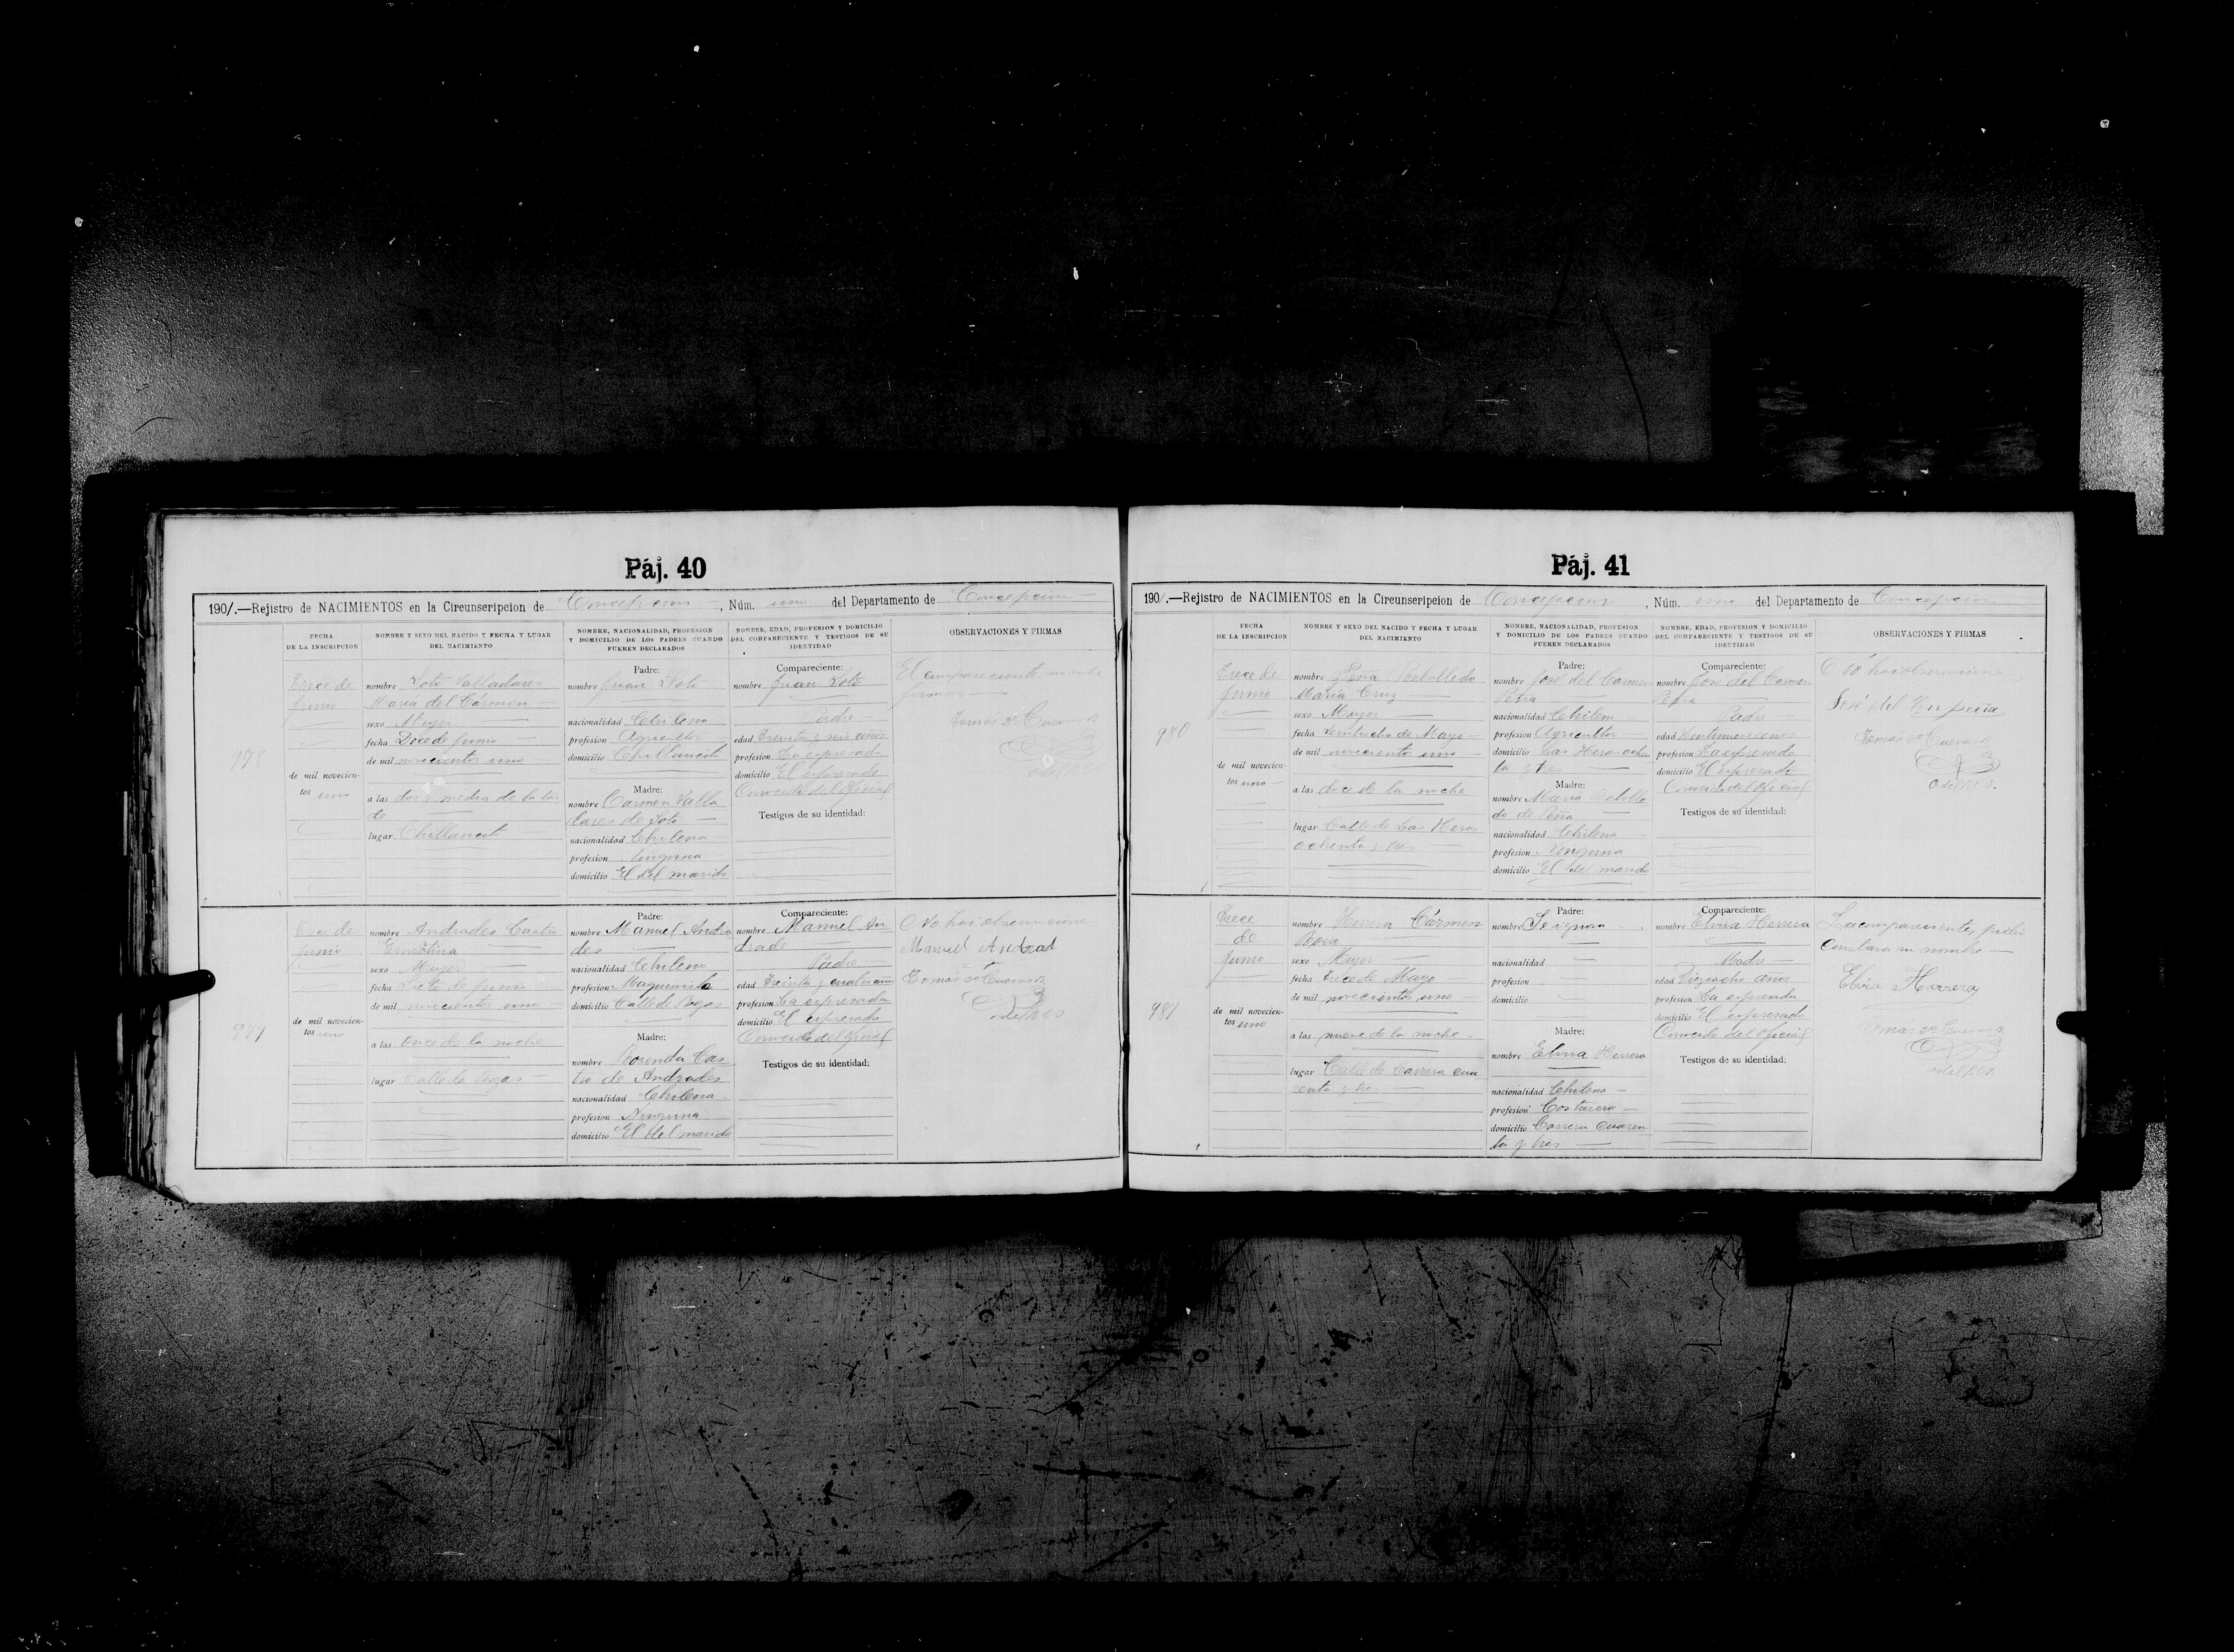 Páj. 40
1901.—Rejistro de NACIMIENTOS en la Circunscripcion de Concepcion, Núm. uno del Departamento de Concepcion
FECHA DE LA INSCRIPCION
NOMBRE Y SEXO DEL NACIDO Y FECHA Y LUGAR DEL NACIMIENTO
NOMBRE, NACIONALIDAD, PROFESION Y DOMICILIO DE LOS PADRES CUANDO FUEREN DECLARADOS
NOMBRE, EDAD, PROFESION Y DOMICILIO DEL COMPARECIENTE Y TESTIGOS DE SU IDENTIDAD
OBSERVACIONES Y FIRMAS
978
Trece de
Junio
de mil novecien-
tos uno
nombre Soto Valladares
Maria del Cármen
sexo Mujer
fecha Doce de Junio
de mil novecientos uno
a las dos y media de la tar
de
lugar Chillancito
Padre:
nombre Juan Soto
nacionalidad Chileno
profesion Agricultor
domicilio Chillancito
Madre:
nombre Carmen Valla
dares de Soto
nacionalidad Chilena
profesion Ninguna
domicilio El del marido
Compareciente:
nombre Juan Soto
Padre
edad Treinta y seis años
profesion La espresada
domicilio El espresado
Conocido del Oficial
Testigos de su identidad:
El compareciente no sabe
firmar
979
Trece de
Junio
de mil novecien-
tos uno
nombre Andrades Castro
Ernestina
sexo Mujer
fecha Siete de Junio
de mil novecientos uno
a las once de la noche
lugar Calle de Rozas
Padre:
nombre Manuel Andra
des
nacionalidad Chileno
profesion Maquinista
domicilio Calle de Rozas
Madre:
nombre Rosenda Cas
tro de Andrades
nacionalidad Chilena
profesion Ninguna
domicilio El del marido
Compareciente:
nombre Manuel An
drade
Padre
edad Treinta y cuatro años
profesion La espresada
domicilio El espresado
Conocido del Oficial
Testigos de su identidad:
No hai observaciones
Manuel Andrad
Páj. 41
1901.—Rejistro de NACIMIENTOS en la Circunscripcion de Concepcion, Núm. uno del Departamento de Concepcion
FECHA DE LA INSCRIPCION
NOMBRE Y SEXO DEL NACIDO Y FECHA Y LUGAR DEL NACIMIENTO
NOMBRE, NACIONALIDAD, PROFESION Y DOMICILIO DE LOS PADRES CUANDO FUEREN DECLARADOS
NOMBRE, EDAD, PROFESION Y DOMICILIO DEL COMPARECIENTE Y TESTIGOS DE SU IDENTIDAD
OBSERVACIONES Y FIRMAS
980
Trece de
Junio
de mil novecien-
tos uno
nombre Peña Rebolledo
Maria Cruz
sexo Mujer
fecha Veintiocho de Mayo
de mil novecientos uno
a las doce de la noche
lugar Calle de Las Heras
ochenta y tres
Padre:
nombre José del Carmen
Peña
nacionalidad Chileno
profesion Agricultor
domicilio Las Heras oche
ta y tres
Madre:
nombre Maria Rebolle
do de Peña
nacionalidad Chilena
profesion Ninguna
domicilio El del marido
Compareciente:
nombre José del Carmen
Peña
Padre
edad
profesion La espresada
domicilio El espresado
Conocido del Oficial
Testigos de su identidad:
No hai observaciones
José del
981
Trece
de
Junio
de mil novecien-
tos uno
nombre Herrera Cármen
Rosa
sexo Mujer
fecha Trece de Mayo
de mil novecientos uno
a las nueve de la noche
lugar Calle de Carrera cua
renta y tres
Padre:
nombre Se ignora
nacionalidad
profesion
domicilio
Madre:
nombre Elvira Herrera
nacionalidad Chilena
profesion Costurera
domicilio Carrera cuaren
ta y tres
Compareciente:
nombre Elvira Herrera
Madre
edad Dieziocho años
profesion La espresada
domicilio El espresado
Conocida del Oficial
Testigos de su identidad:
La compareciente, pidió
constara su nombre
Elvira Herrera